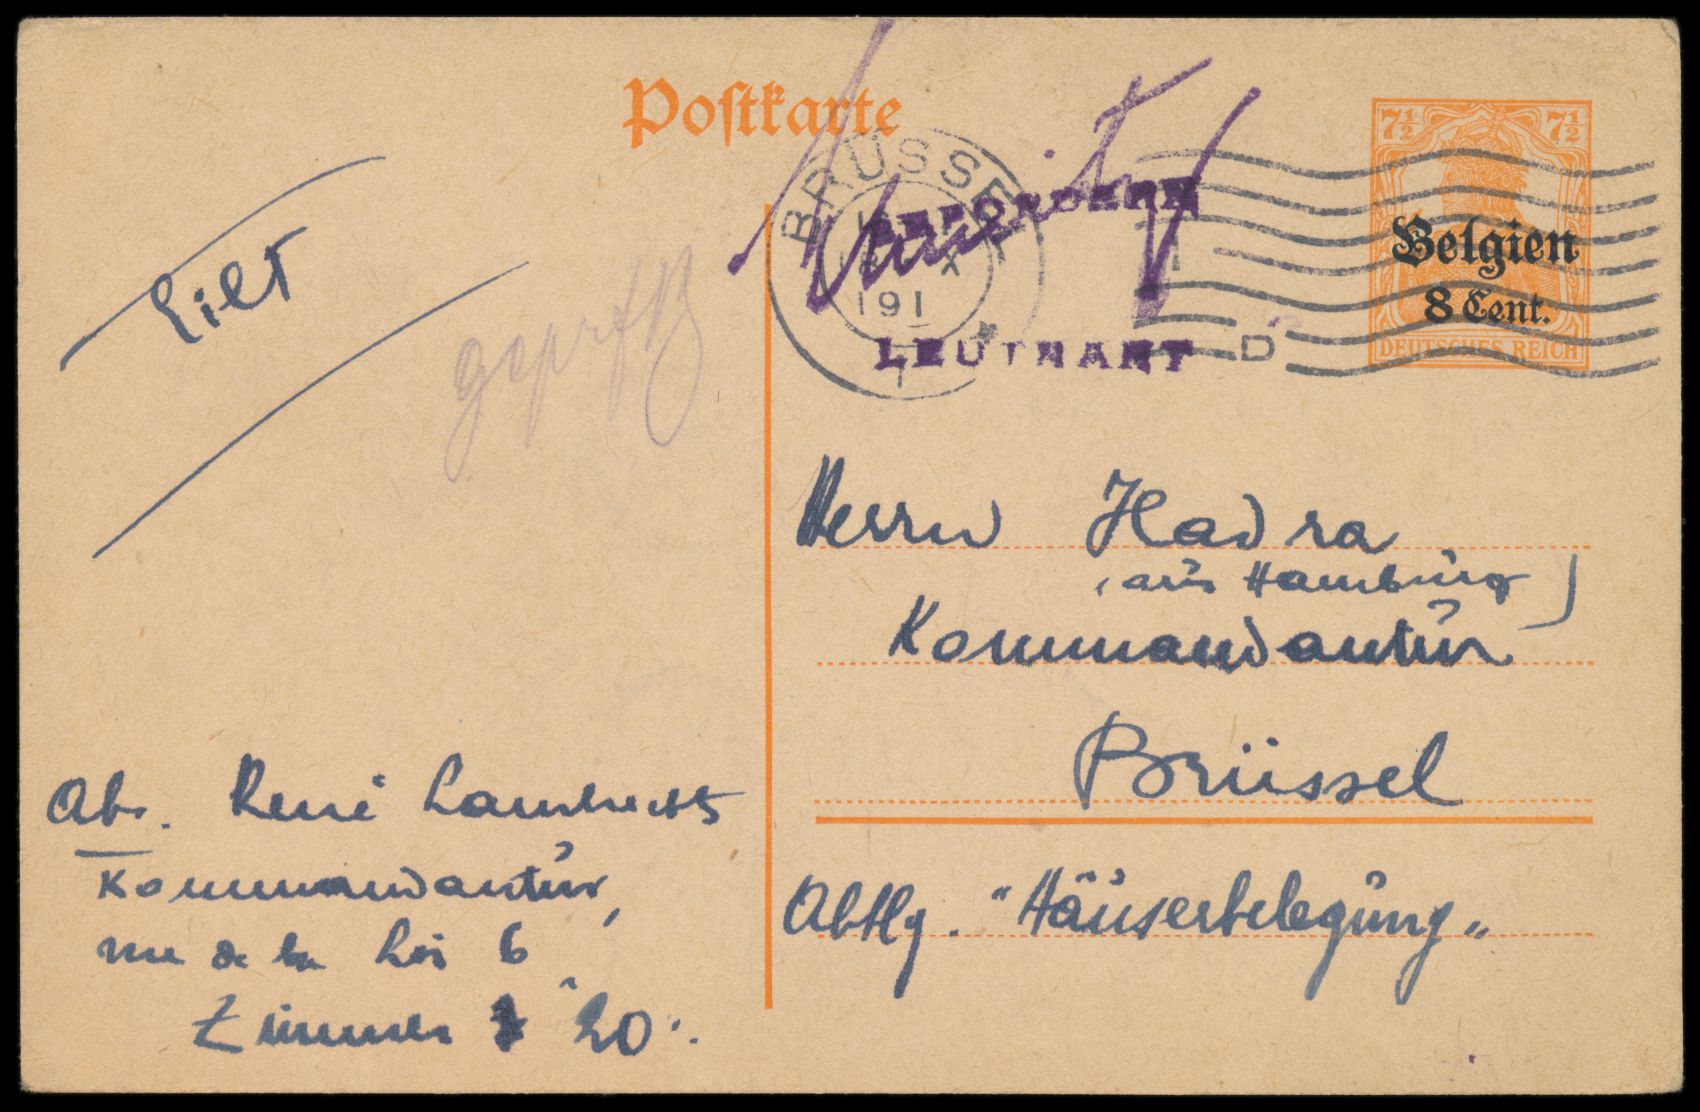 Postkarte
7½ 7½
Belgien
8 Cent.
DEUTSCHES REICH
BRÜSSEL
191
1
D
LEUTNANT
Eilt
Herrn Hadra
(aus Hamburg)
Kommandantur
Brüssel
Abtlg. "Häuserbelegung"
Abs. René Lambrechts
Kommandantur,
rue de la Loi 6
Zimmer 20.